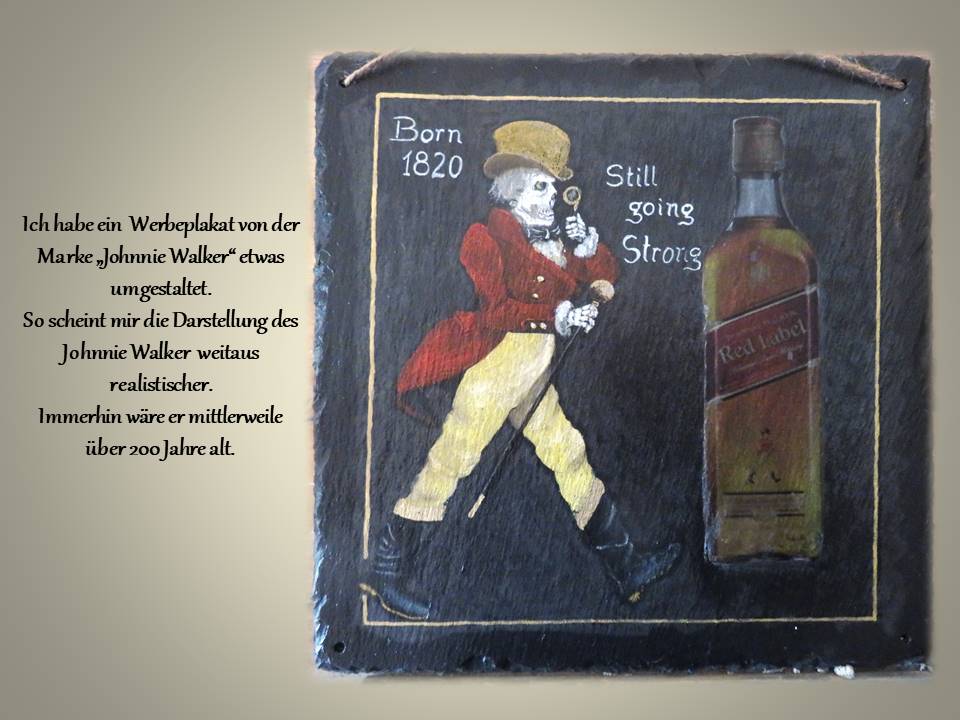 Ich habe ein Werbeplakat von der
Marke „Johnnie Walker“ etwas
umgestaltet.
So scheint mir die Darstellung des
Johnnie Walker weitaus
realistischer.
Immerhin wäre er mittlerweile
über 200 Jahre alt.
Born
1820
Still
going
Strong
Red Label